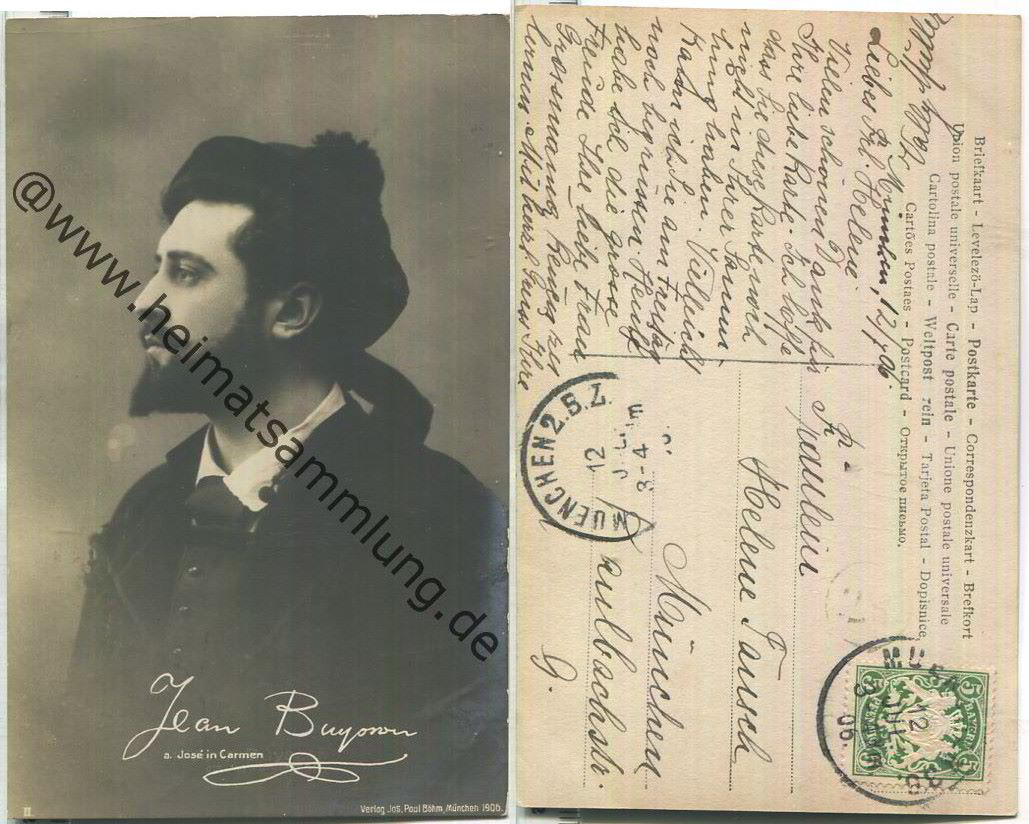 @www.heimatsammlung.de
Jean Buysson
a. José in Carmen
II.
Verlag Jos. Paul Böhm, München 1906.
Briefkaart - Levelező-Lap - Postkarte - Correspondenzkart - Brefkort
Union postale universelle - Carte postale - Unione postale universale
Cartolina postale - Weltpost rein - Tarjeta Postal - Dopisnice
Cartões Postaes - Postcard - Открытое письмо.
München, 12/7 06.
Liebes Frl. Helene!
Vielen schönen Dank für
Ihre liebe Karte. Ich hoffe
dass Sie diese Karte noch
nicht in Ihrer Samm
lung haben. Vielleicht
kann ich Sie am Freitag
noch begrüssen. Heute
habe ich die grosse
Freude Ihre liebe Frau
Grossmama
Mit herzl. Gruss Ihre
Fräulein
Helene Tausch
München
Kaulbachstr.
9.
MUENCHEN 2.B.Z.
12 JUL
3-4 Nm
06.
BAYERN
5
5
5
5
PFENNIG
12 JUL
06.